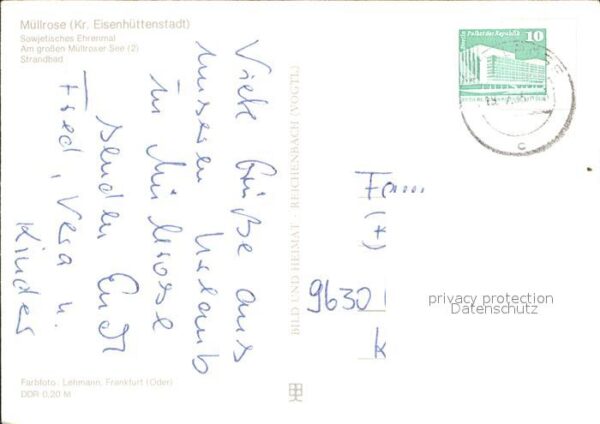 Müllrose (Kr. Eisenhüttenstadt)
Sowjetisches Ehrenmal
Am großen Müllroser See (2)
Strandbad
Viele Grüße aus
unserem Urlaub
in Müllrose
senden Euch
Fred, Vera u.
Kinder
BILD UND HEIMAT · REICHENBACH (VOGTL)
Palast der Republik
10
c
Fam...
(+)
9630 1
K
privacy protection
Datenschutz
Farbfoto: Lehmann, Frankfurt (Oder)
DDR 0,20 M